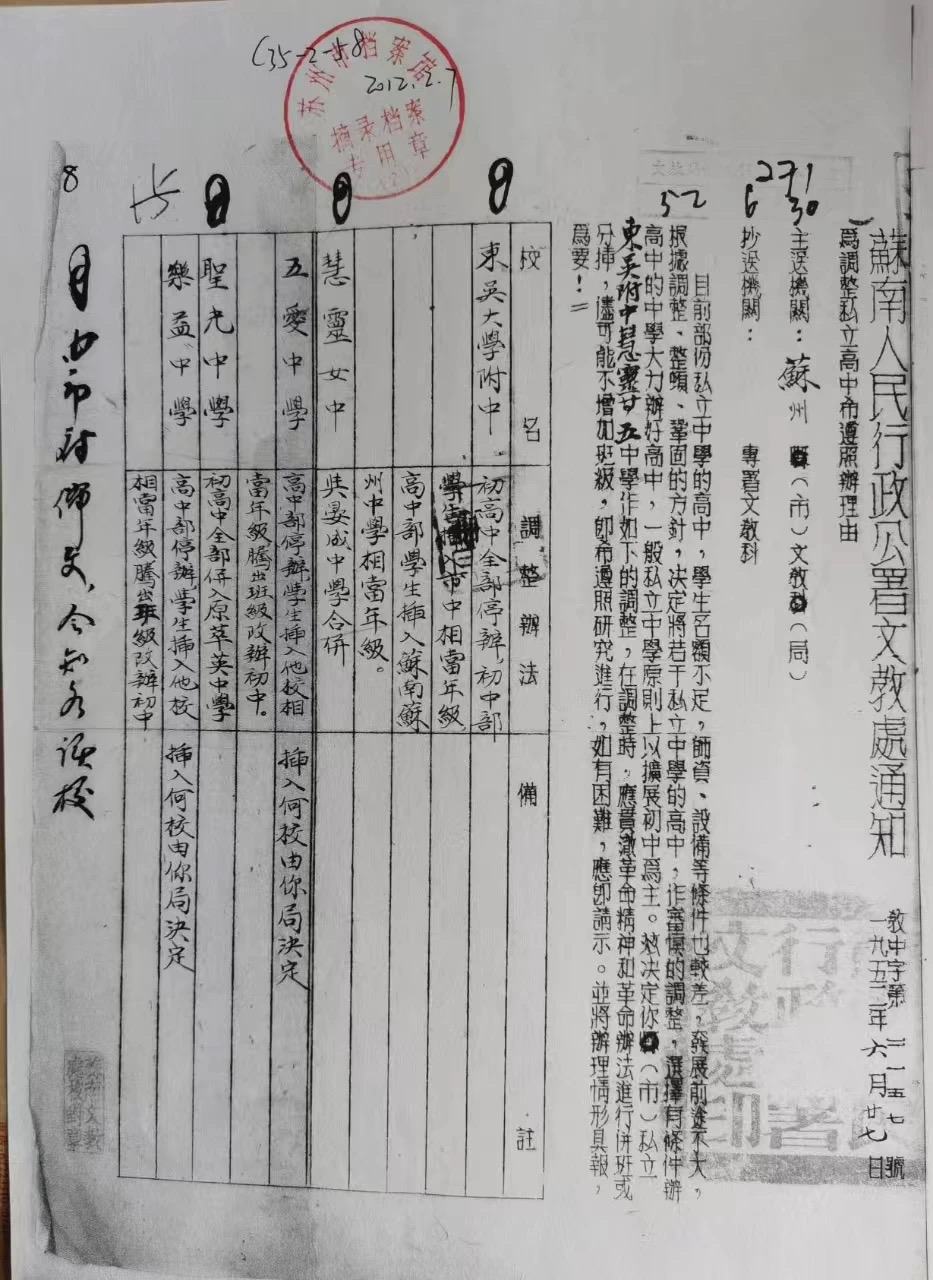 C35-2-158
2012.2.7
苏州市档案馆
摘录档案
专用章
(2)
271
6 30
52
蘇南人民行政公署文教處通知
教中字第二一五七號
一九五二年六月廿七日
為調整私立高中希遵照辦理由
主送機關：蘇州縣（市）文教科（局）
抄送機關：　專署文教科
目前部份私立中學的高中，學生名額不足，師資、設備等條件也較差，發展前途不大，
根據調整、整頓、鞏固的方針，决定將若干私立中學的高中，作審慎的調整，選擇有條件辦
高中的中學大力辦好高中，一般私立中學原則上以擴展初中為主。茲決定你縣（市）私立
東吳附中慧靈廿五中學作如下的調整，在調整時，應貫澈革命精神和革命辦法進行併班或
分插，儘可能不增加班級，卽希遵照研究進行，如有困難，應卽請示。並將辦理情形具報，
為要！
校名　調整辦法　備註
東吳大學附中　初高中全部停辦，初中部
學生插入市中相當年級
高中部學生插入蘇南蘇
州中學相當年級。
慧靈女中　與晏成中學合併
五愛中學　高中部停辦學生插入他校相　插入何校由你局決定
當年級騰出班級改辦初中。
聖光中學　初高中全部併入原萃英中學
樂益中學　高中部停辦學生插入他校　插入何校由你局決定
相當年級騰出班級改辦初中
8